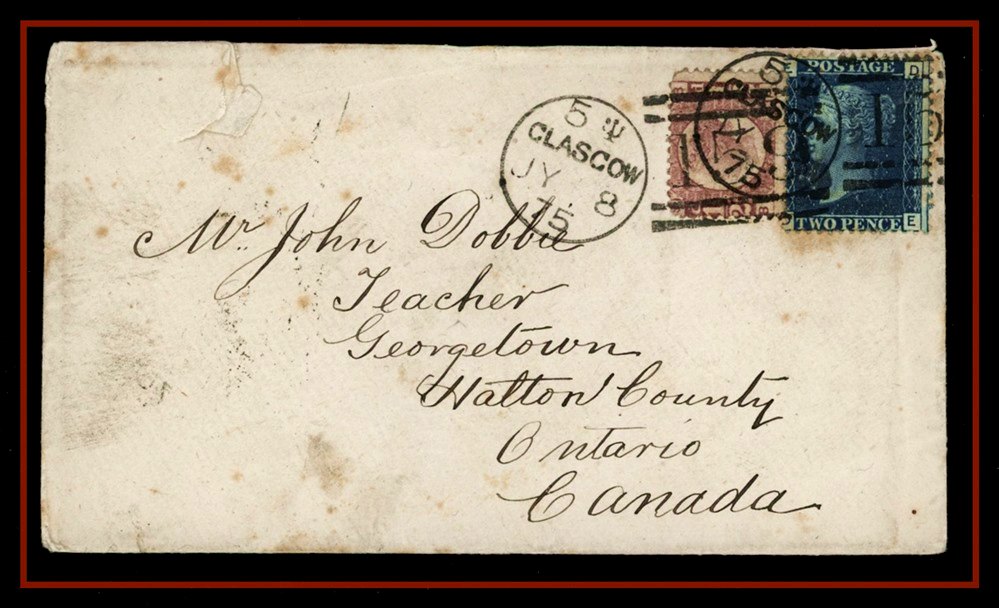 5
GLASGOW
JY 8
75
5
GLASGOW
75
1
1
E POSTAGE D
TWO PENCE E
Mr. John Dobbie
Teacher
Georgetown
Halton County
Ontario
Canada